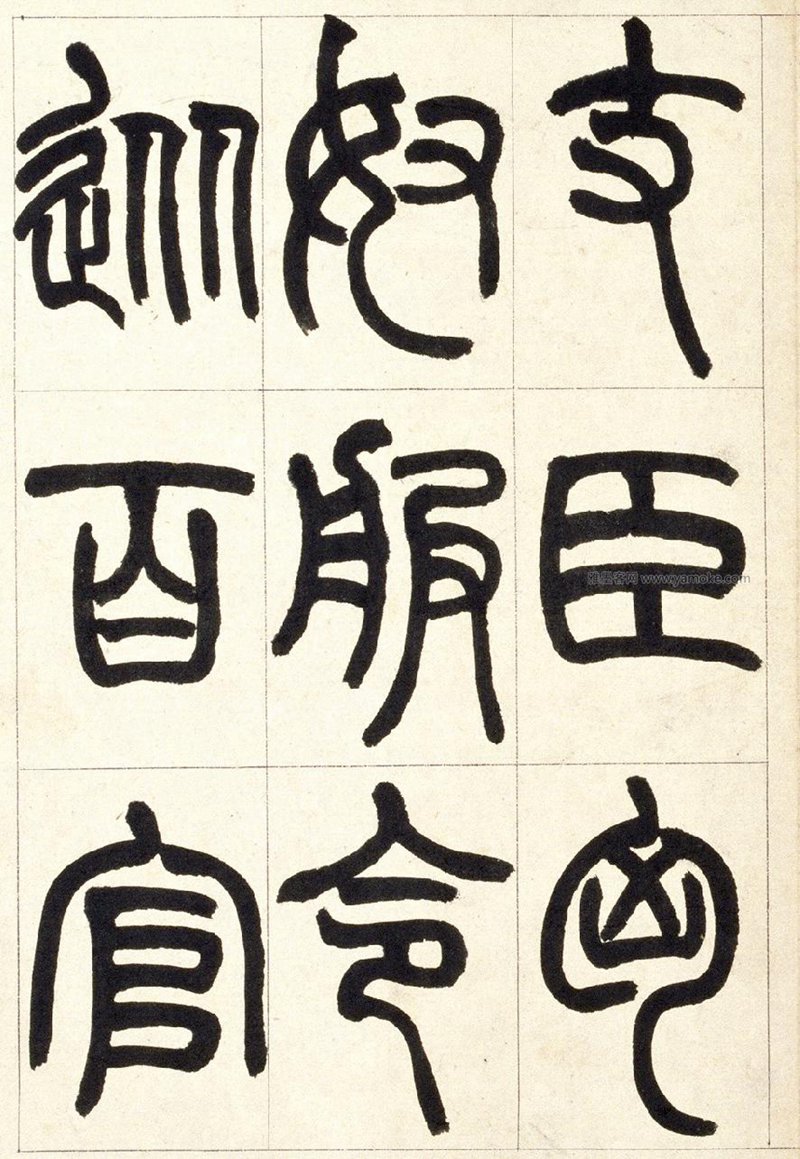 支臣匈
奴服令
從百官
雅墨客网 www.yamoke.com